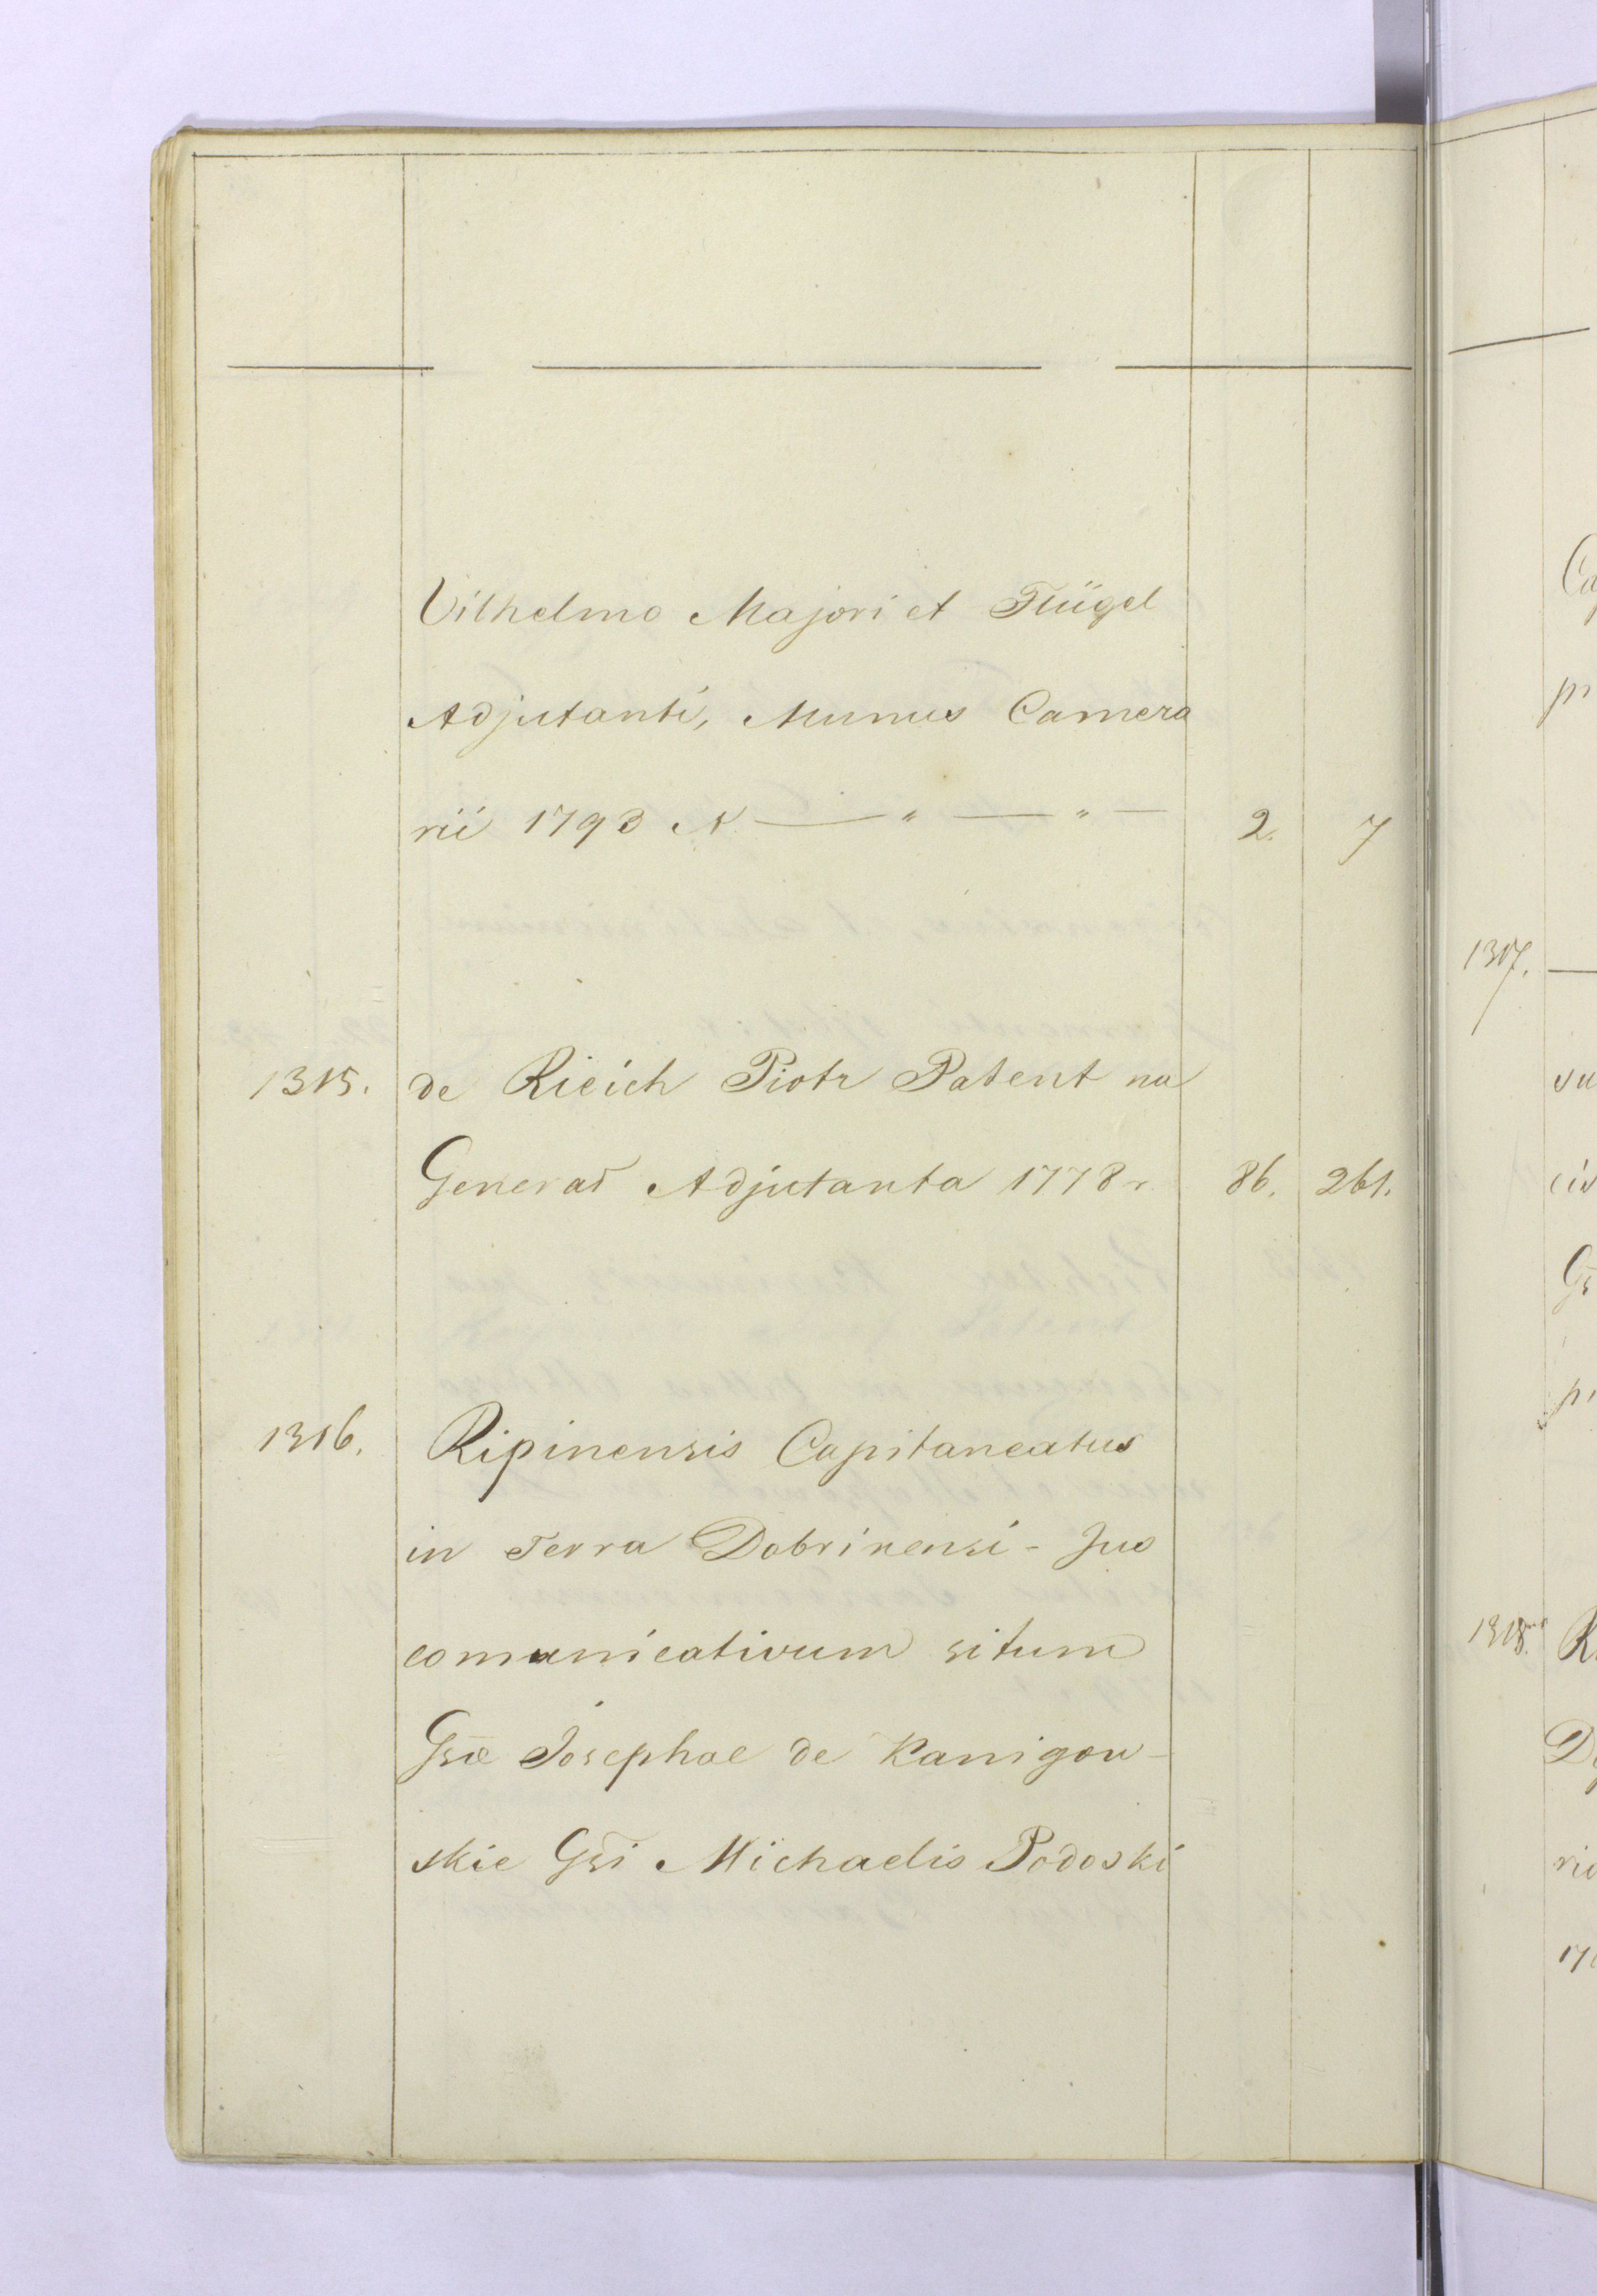 Vilhelmo Majori et Flügel
Adjutanti, Munus Camera
rii 1793 N — " — " — 2. 7
1315. de Rieich Piotr Patent na
Generał Adjutanta 1778 r. 86. 261.
1316. Ripinensis Capitaneatus
in Terra Dobrinensi - Jus
comunicativum situm
Gsæ Josephae de Kanigow-
skie Gsi Michaelis Podoski
1317. —
1318.